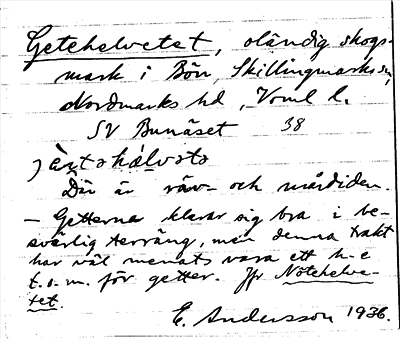 Getehelvetet, oländig skogs-
mark i Bön, Skillingmarks sn,
Nordmarks hd, Vrml l.
SV Bunäset 38
Där är räv- och mårdiden.
— Getterna klarar sig bra i be-
svärlig terräng, men denna trakt
har väl menats vara ett h-e
t.o.m. för getter. Jfr Nötehelve-
tet.
E. Andersson 1936.